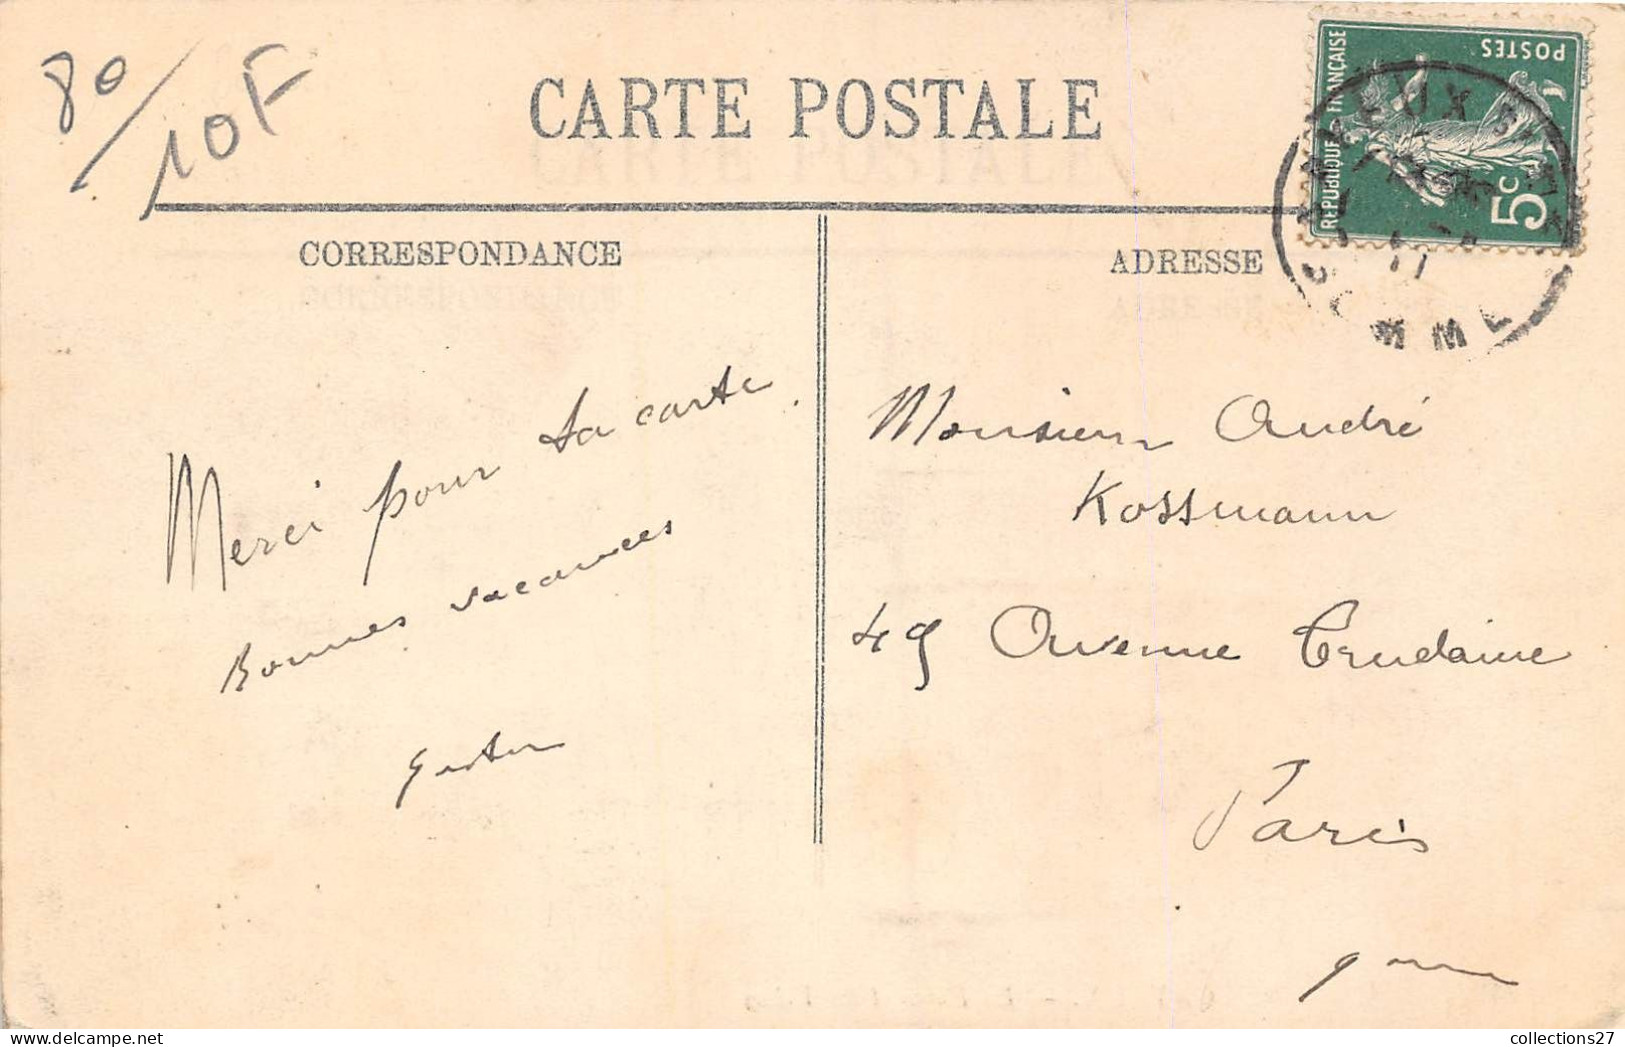 80/10F
CARTE POSTALE
REPUBLIQUE FRANÇAISE
POSTES
5c
SOMME
CORRESPONDANCE
ADRESSE
Merci pour ta carte.
Bonnes vacances
Gaston
Monsieur André
Kossmann
49 Avenue Trudaine
Paris
collections27